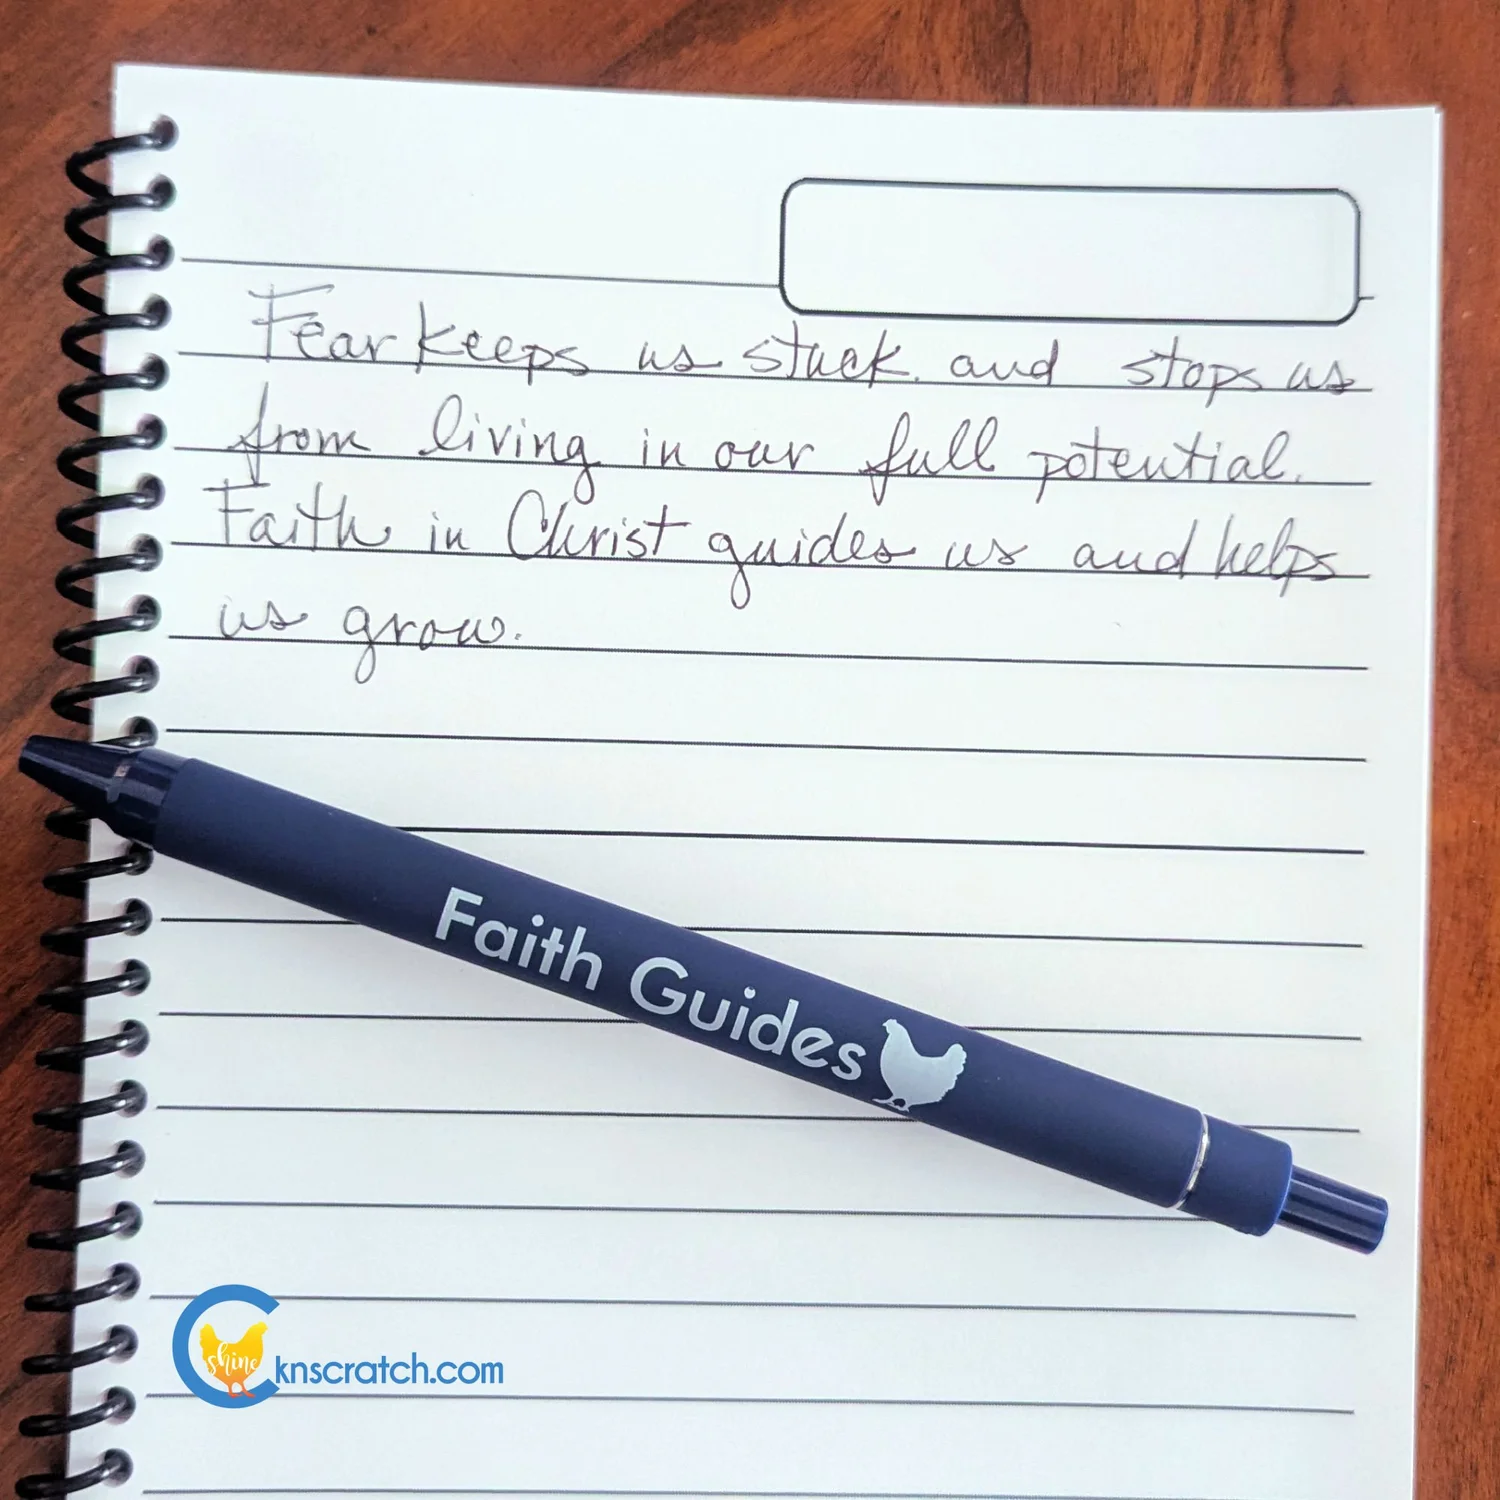 Fear keeps us stuck and stops us
from living in our full potential.
Faith in Christ guides us and helps
us grow.
Faith Guides
shine
cknscratch.com